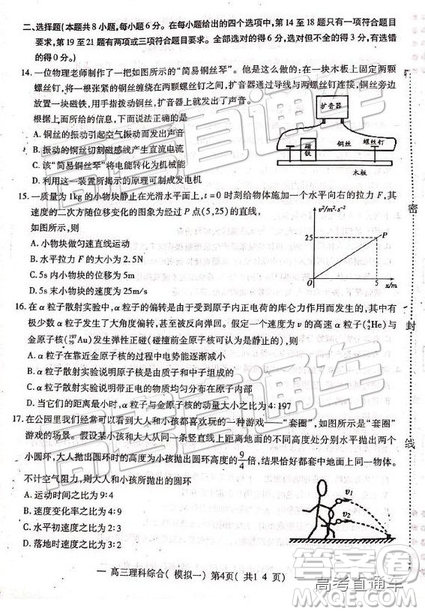 二、选择题(本题共8小题,每小题6分。在每小题给出的四个选项中,第14至18题只有一项符合题目要
求,第19至21题有两项或三项符合题目要求。全部选对的得6分,选对但不全的得3分,有选错
的得0分)
14. 一位物理老师制作了一把如图所示的“简易钢丝琴”。他是这么做的:在一块木板上固定两颗
螺丝钉,将一根张紧的钢丝缠绕在两颗螺丝钉之间,扩音器通过导线与两颗螺丝钉连接,钢丝旁边
放置一块磁铁,用手指拨动钢丝,扩音器上就发出了声音。
根据上面所给的信息,下面说法正确的是
A. 钢丝的振动引起空气振动而发出声音
B. 振动的钢丝切割磁感线产生直流电流
C. 该“简易钢丝琴”将电能转化成机械能
D. 利用这一装置所揭示的原理可制成发电机
扩音器
磁铁
钢丝
螺丝钉
木板
15. 一质量为1kg的小物块静止在光滑水平面上,t=0时刻给物体施加一个水平向右的拉力F,其
速度的二次方随位移变化的图象为经过P点(5,25)的直线,
如图所示,则
A. 小物块做匀速直线运动
B. 水平拉力F的大小为2.5N
C. 5s内小物块的位移为5m
D. 5s末小物块的速度为25m/s
v²/m²·s⁻²
25
P
0
5
x/m
16. 在α粒子散射实验中,α粒子的偏转是由于受到原子内正电荷的库仑力作用而发生的,其中有
极少数α粒子发生了大角度偏转,甚至被反向弹回。假定一个速度为v的高速α粒子(⁴₂He)与
金原子核(¹⁹⁷₇₉Au)发生弹性正碰(碰撞前金原子核可认为静止),则
A. α粒子在靠近金原子核的过程中电势能逐渐减小
B. α粒子散射实验说明原子核是由质子和中子组成的
C. α粒子散射实验说明带正电的物质均匀分布在原子内部
D. 
17. 在公园里我们经常可以看到大人和小孩都喜欢玩的一种游戏——“套圈”,如图所示是“套圈”
游戏的场景。假设某小孩和大人从同一条竖直线上距离地面的不同高度处分别水平抛出两个
小圆环,大人抛出圆环时的高度为小孩抛出圆环高度的9/4倍,结果恰好都套中地面上同一物体。
不计空气阻力,则大人和小孩所抛出的圆环
A. 运动时间之比为9:4
B. 速度变化率之比为4:9
C. 水平初速度之比为2:3
D. 落地时速度之比为3:2
v1
v2
密
封
线
— 高三理科综合(模拟一) 第4页(共14页)
高考直通车
答案圈